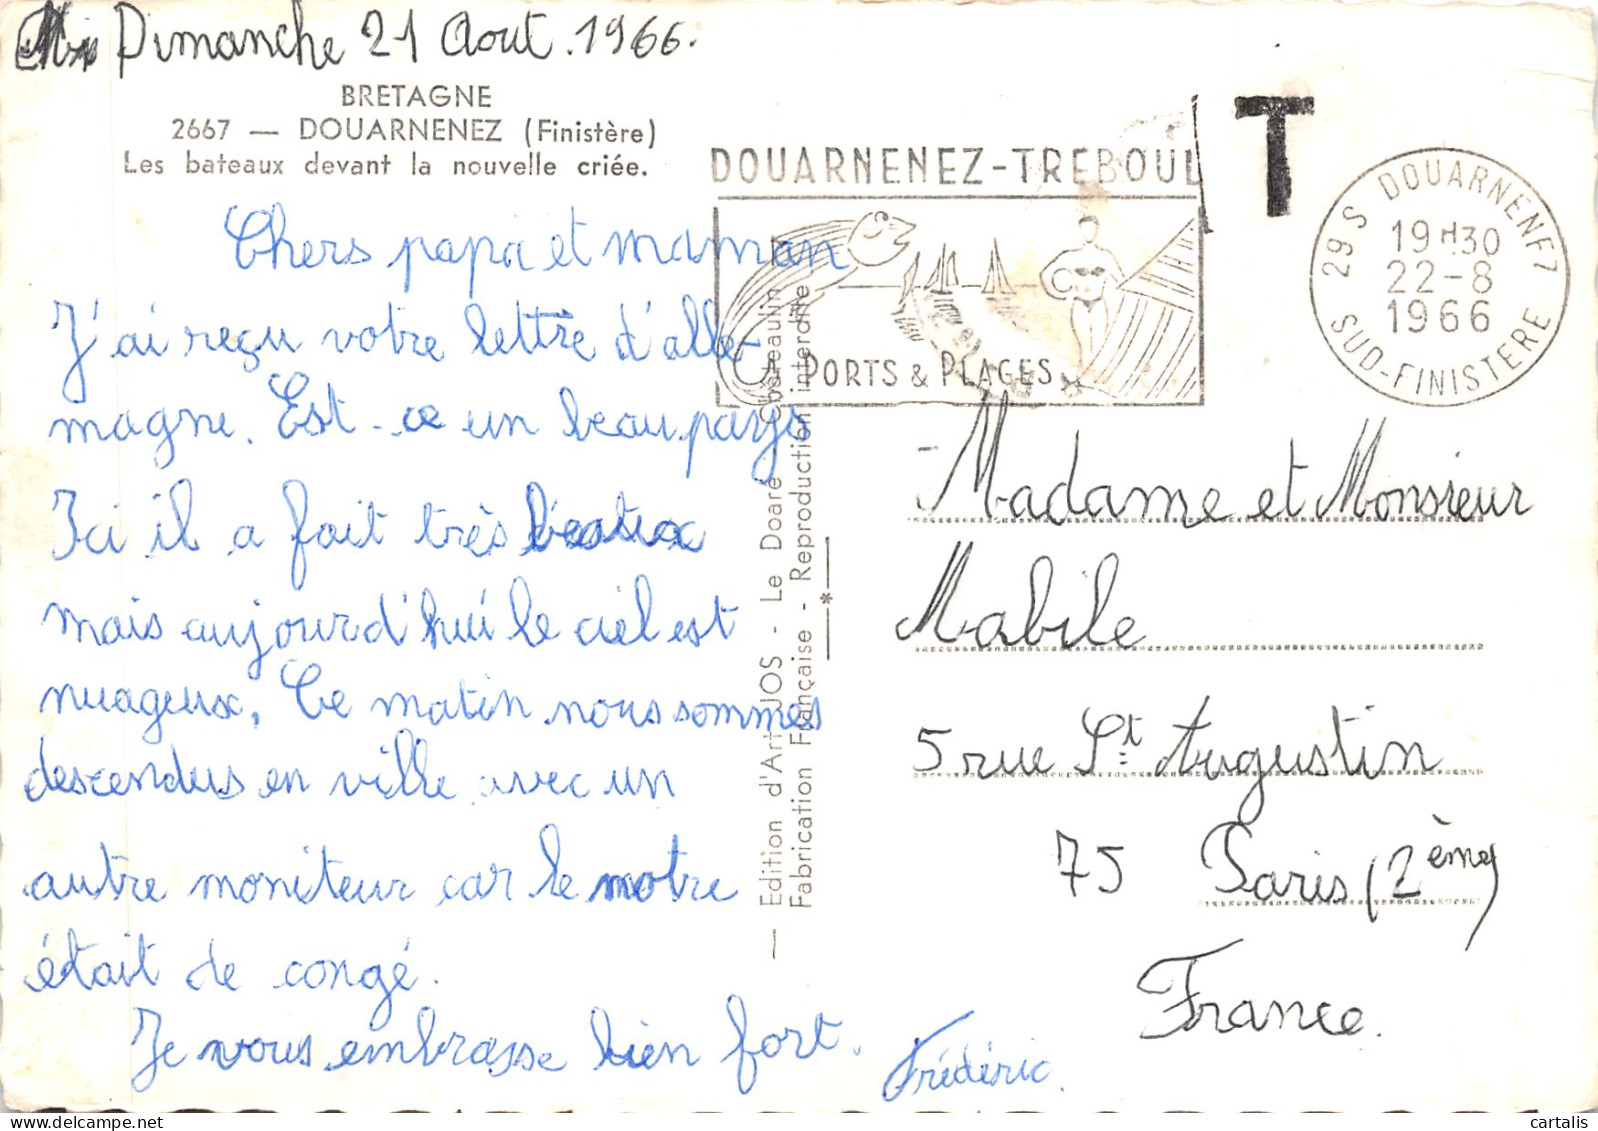 Dimanche 21 Aout. 1966.
BRETAGNE
2667 — DOUARNENEZ (Finistère)
Les bateaux devant la nouvelle criée.
Chers papa et maman
J'ai reçu votre lettre d'alle-
magne. Est-ce un beau pays
Ici il a fait très beau
mais aujourd'hui le ciel est
nuageux. Ce matin nous sommes
descendus en ville avec un
autre moniteur car le notre
était de congé.
Je vous embrasse bien fort.
Frédéric.
— Edition d'Art JOS - Le Doaré - Châteaulin —
Fabrication Française - Reproduction interdite
DOUARNENEZ-TREBOUL
PORTS & PLAGES
T
29 S DOUARNENEZ
19H30
22-8
1966
SUD-FINISTERE
Madame et Monsieur
Mabile
5 rue St Augustin
75 Paris (2ème)
France.
cartalis